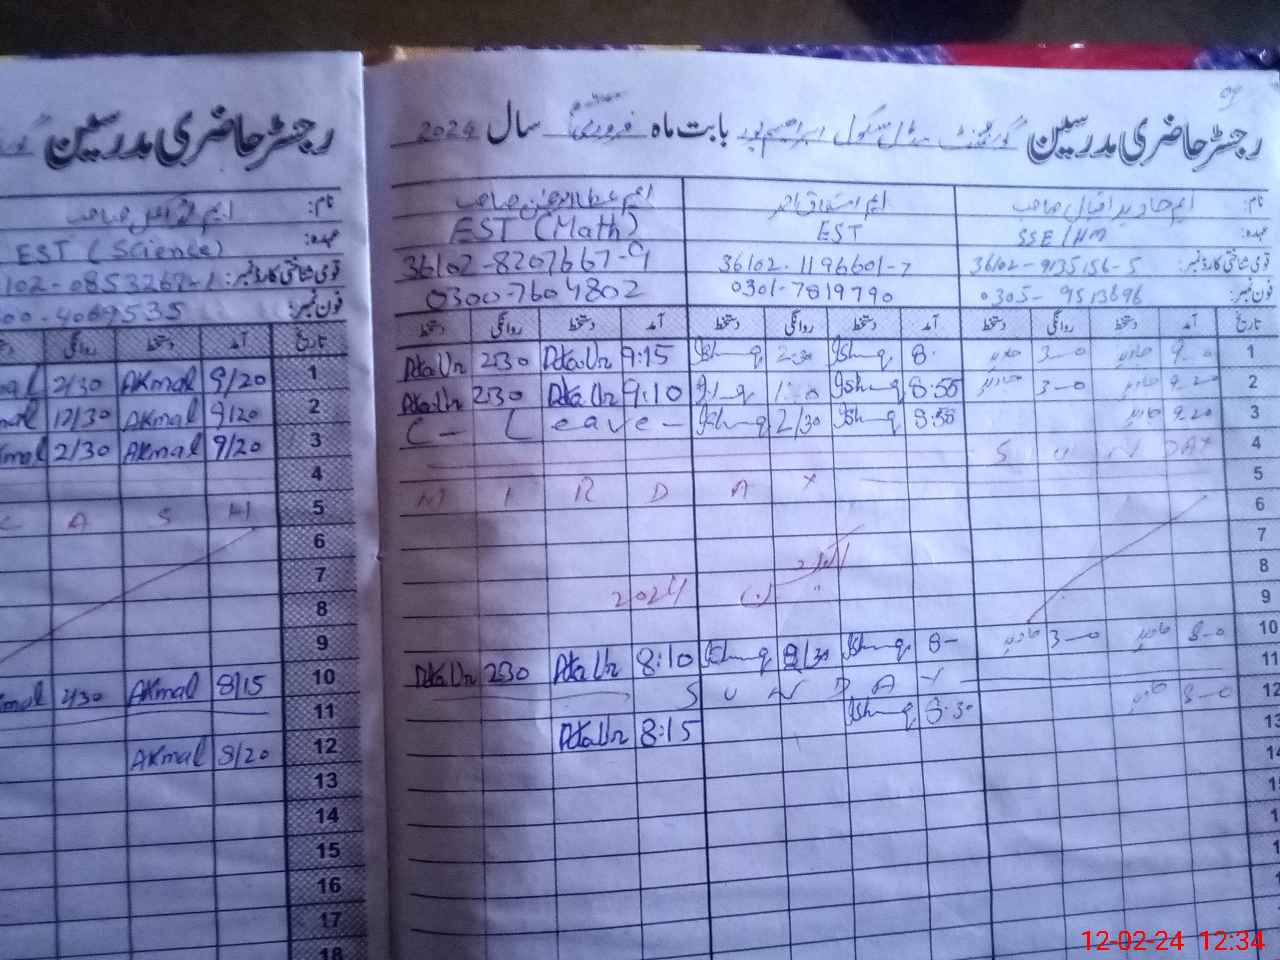 رجسٹر حاضری مدرسین گورنمنٹ مڈل سکول ابراہیم پور بابت ماہ فروری سال 2024
نام: ایم جاوید اقبال صاحب ایم اشتیاق احمد ایم عطاالرحمن صاحب
عہدہ: SSE/HM EST EST (Math)
قومی شناختی کارڈ نمبر: 36102-9135156-5 36102-1196601-7 36102-8207667-9
فون نمبر: 0305-9513696 0301-7819790 0300-7604802
تاریخ آمد دستخط روانگی دستخط آمد دستخط روانگی دستخط آمد دستخط روانگی دستخط
1 9-0 جاوید 3-0 جاوید 8 Ishaq 2:30 Ishaq 9:15 Atta Ur 2:30 Atta Ur
2 9-20 جاوید 3-0 جاوید 8:55 Ishaq Ishaq 9:10 Atta Ur 2:30 Atta Ur
3 9-20 جاوید 8:55 Ishaq 2/30 Ishaq C - Leave -
4 SUNDAY
5
6
7
8
9 2024
10 8-0 جاوید 3-0 جاوید 8- Ishaq 2/30 Ishaq 8:10 Atta Ur 2:30 Atta Ur
11 SUNDAY
12 8-0 جاوید 8:30 Ishaq 8:15 Atta Ur
13
14
رجسٹر حاضری مدرسین
نام: ایم اکمل صاحب
عہدہ: EST (Science)
قومی شناختی کارڈ نمبر: 102-0853267-1
فون نمبر: 00-4069535
تاریخ آمد دستخط روانگی
1 9/20 Akmal 2/30
2 9/20 Akmal 12/30
3 9/20 Akmal 2/30
4
5
6
7
8
9
10 8/15 Akmal 2/30
11
12 8/20 Akmal
13
14
15
16
17
18
12-02-24 12:34